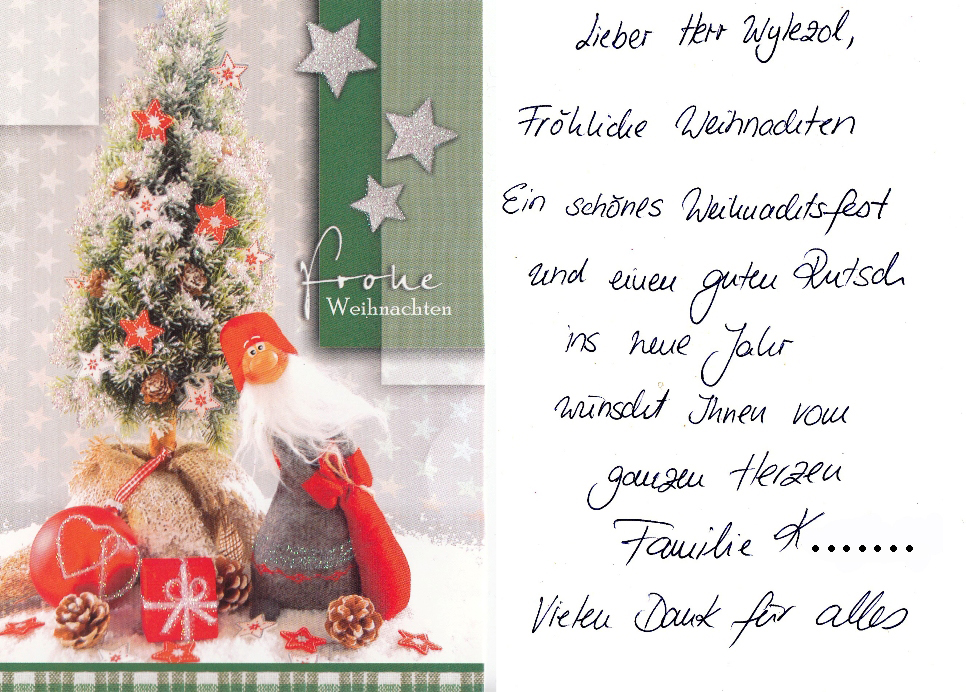 Frohe
Weihnachten
Lieber Herr Wylezol,
Fröhliche Weihnachten
Ein schönes Weihnachtsfest
und einen guten Rutsch
ins neue Jahr
wünscht Ihnen vom
ganzen Herzen
Familie K.......
Vielen Dank für alles